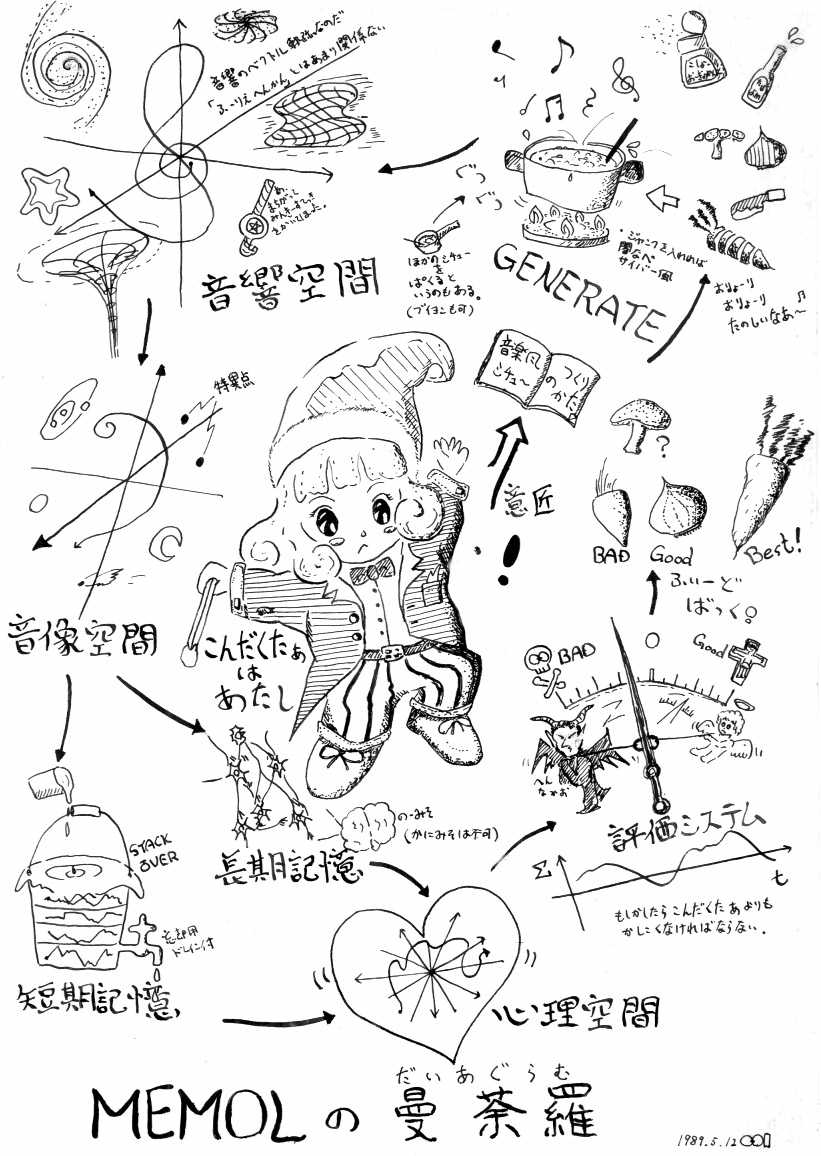 音響のベクトル軌跡なのだ
「ふーりえへんかん」とはあまり関係ない
あ、
まちがって
をかいてしまった。
音響空間
ほかのシチュー
を
ぱくると
いうのもある。
(ブイヨンも可)
ぐつ
ぐつ
GENERATE
・ジャンクを入れれば
闇なべ
サイバー風
おりょーり
おりょーり
たのしいなあ〜
音楽風
シチュ〜
つくり
のかた
特異点
意匠
?
BAD
Good
Best!
ふぃーど
ばっく。
音像空間
こんだくたぁ
は
あたし
BAD
Good
へん
なかお
評価システム
Σ
t
もしかしたらこんだくたぁよりも
かしこくなければならない。
STACK
OVER
忘却用
ドレイン付
短期記憶
長期記憶
のーみそ
(かにみそは不可)
心理空間
だいあぐらむ
MEMOLの曼荼羅
1989.5.12